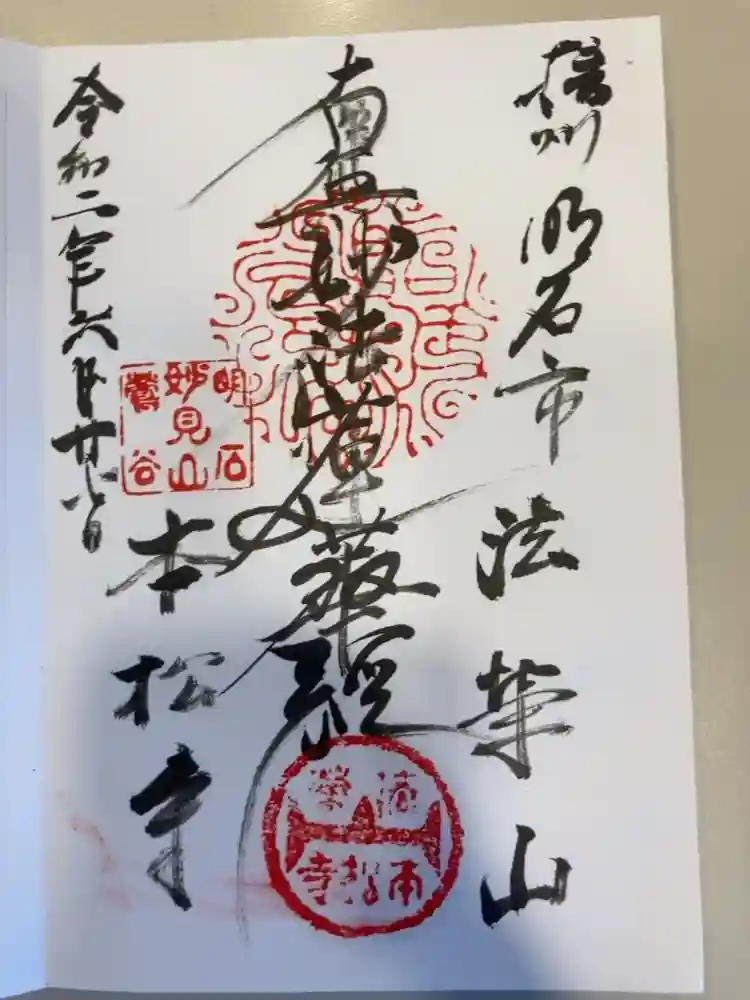 播州 明石市 法栄山
南無妙法蓮華経
本松寺
令和二年六月廿八日
明石
妙見山
鶯谷
法榮
本松寺